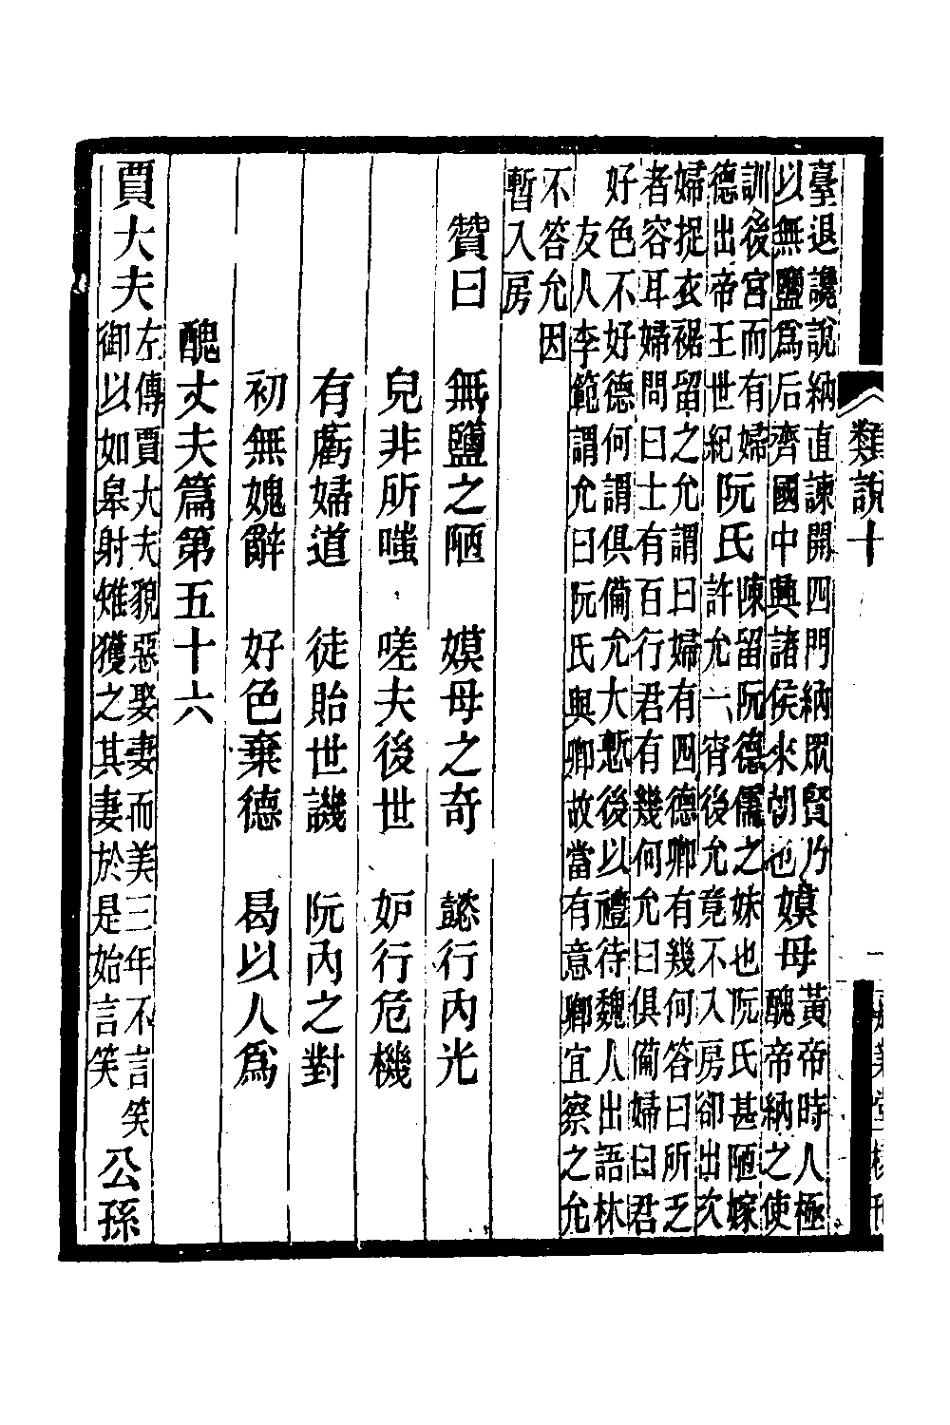 臺退讒說納直諫開四門納眾賢乃
以無鹽爲后齊國中興諸侯來朝也
嫫母
黃帝時人極
醜帝納之使
訓後宮而有婦
德出帝王世紀
阮氏
陳留阮德儒之妹也阮氏甚陋嫁
許允一宵後允竟不入房卻出次
婦捉衣裾留之允謂曰婦有四德卿有幾何答曰所乏
者容耳婦問曰士有百行君有幾何允曰俱備婦曰君
好色不好德何謂俱備允大慙後以禮待魏人出語林
友人李範謂允曰阮氏與卿故當有意卿宜察之允
不答允因
暫入房
贊曰 無鹽之陋 嫫母之奇 懿行內光
皃非所嗤 嗟夫後世 妒行危機
有虧婦道 徒貽世譏 阮內之對
初無媿辭 好色棄德 曷以人爲
醜丈夫篇第五十六
賈大夫
左傳賈大夫貌惡娶妻而美三年不言笑
御以如皋射雉獲之其妻於是始言笑
公孫
類說十